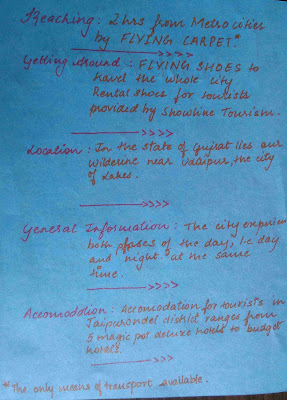 Reaching : 2 hrs from Metro cities
by FLYING CARPET.*
Getting Around : FLYING SHOES to
travel the whole city
Rental shoes for tourists
provided by Showbine Tourism.
Location : In the state of Gujrat lies our
near Udaipur, the city
of Lakes.
General Information : The city experien
both phases of the day, i.e day
and night at the same
time.
Accomodtion : Accomodation for tourists in
district ranges from
5 magic pot deluxe hotels to budget
hotels.
*The only means of transport available.